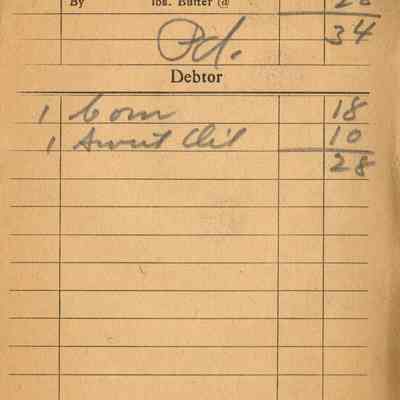 By lbs. Butter @ 28
34
Pd.
Debtor
1 Corn 18
1 Sweet Oil 10
28